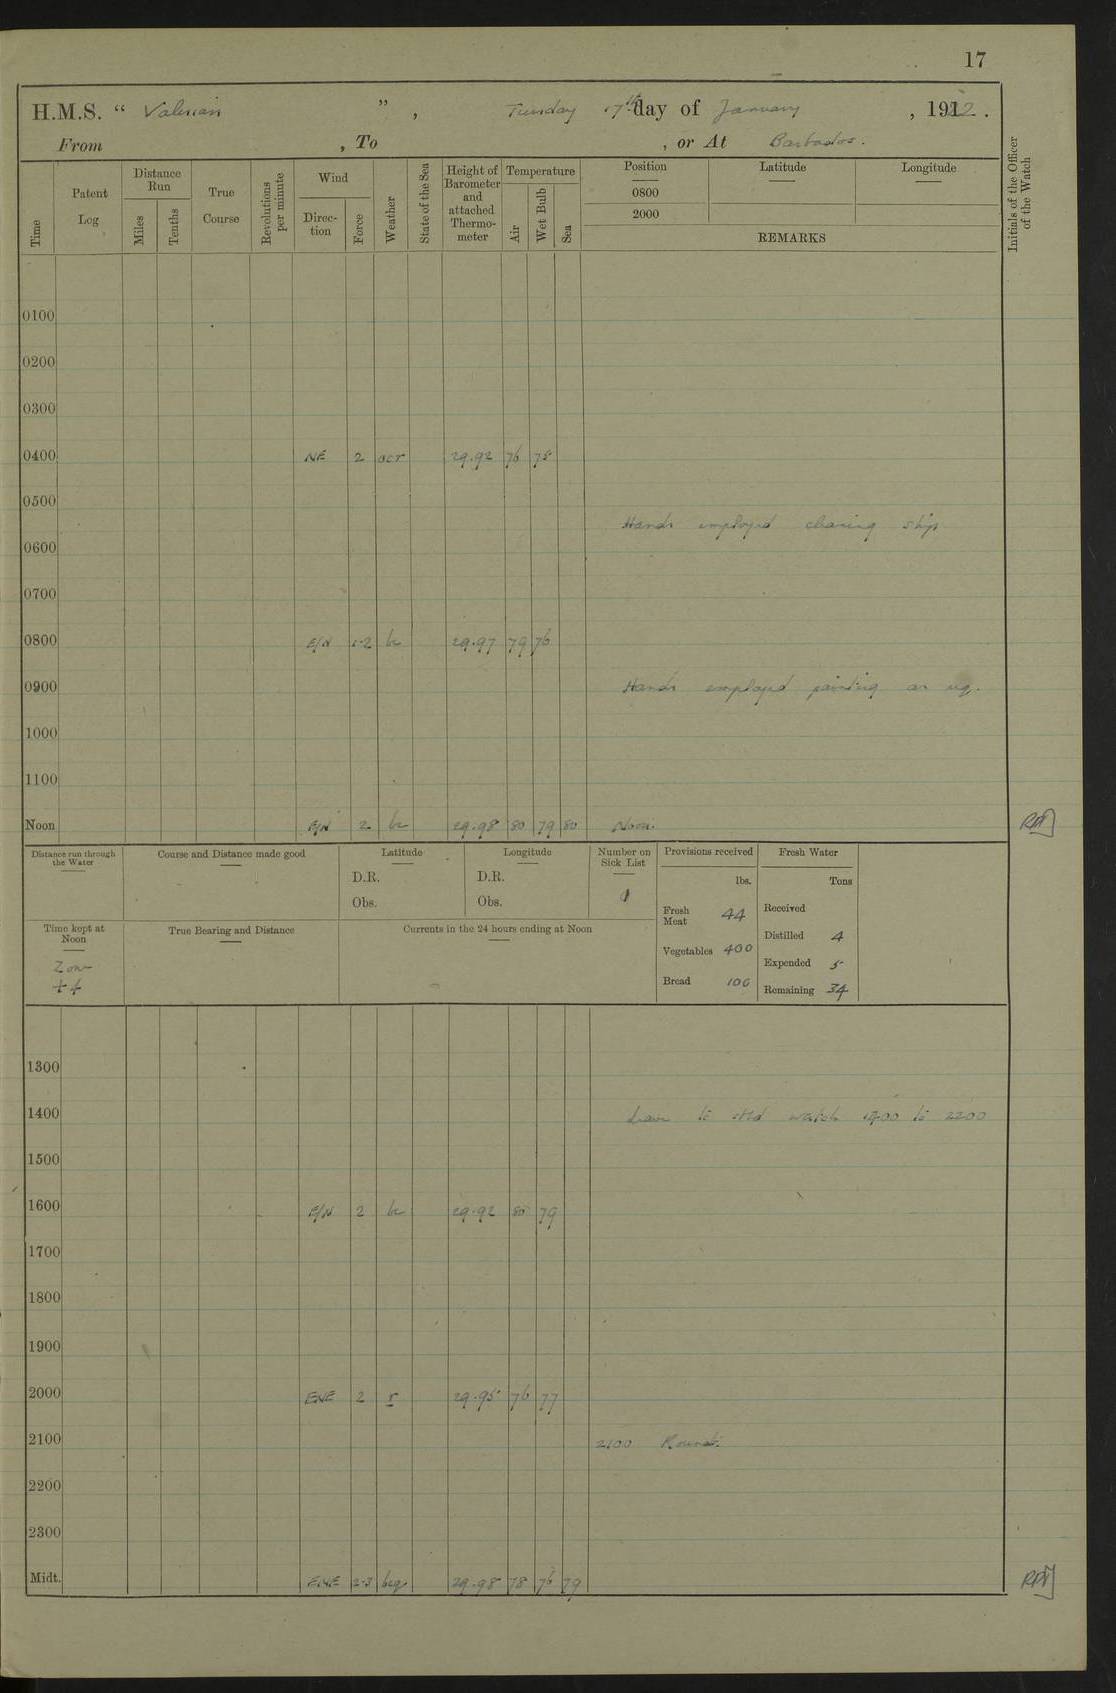 17
H.M.S. “ Valerian ” , Tuesday 17th day of January , 1922 .
From , To , or At Barbados .
Time
Patent Log
Distance Run
Miles
Tenths
True Course
Revolutions per minute
Wind
Direction
Force
Weather
State of the Sea
Height of Barometer and attached Thermometer
Temperature
Air
Wet Bulb
Sea
Position Latitude Longitude
0800
2000
REMARKS
Initials of the Officer of the Watch
0100
0200
0300
0400 NE 2 ocr 29.92 76 78
0500
Hands employed cleaning ship
0600
0700
0800 E/N 1-2 bc 29.97 79 76
0900 Hands employed painting as req.
1000
1100
Noon E/N 2 bc 29.98 80 79 80 Noon.
Distance run through the Water
Course and Distance made good
Latitude
D.R.
Obs.
Longitude
D.R.
Obs.
Number on Sick List
1
Provisions received
lbs.
Fresh Meat 44
Vegetables 400
Bread 100
Fresh Water
Tons
Received
Distilled 4
Expended 5
Remaining 34
Time kept at Noon
Zone
+4
True Bearing and Distance
Currents in the 24 hours ending at Noon
1300
1400 Leave to watch to 2200
1500
1600 E/N 2 bc 29.92 80 79
1700
1800
1900
2000 ENE 2 r 29.95 76 77
2100 2100 Rounds.
2200
2300
Midt. ENE 2-3 bcq 29.98 78 76 79